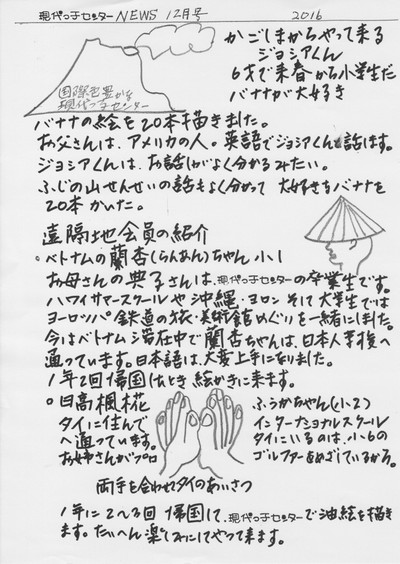 現代っ子センター NEWS 12月号 2016
かごしまからやって来る
ジョシアくん
6才で来春から小学生だ
バナナが大好き
国際色豊かな
現代っ子センター
バナナの絵を20本描きました。
お父さんは、アメリカの人。英語でジョシアくんも話します。
ジョシアくんは、お話しがよく分かるみたい。
ふじの山せんせいの話もよく分かって 大好きなバナナを
20本 かいた。
遠隔地会員の紹介
・ベトナムの蘭杏(らんあん)ちゃん 小1
お母さんの典子さんは、現代っ子センターの卒業生です。
ハワイサマースクールや沖縄・ヨロン そして大学生では
ヨーロッパ鉄道の旅・美術館めぐりを一緒にしました。
今はベトナム滞在中で蘭杏ちゃんは、日本人学校へ
通っています。日本語は、大変上手になりました。
1年2回帰国したとき 絵かきに来ます。
○日高楓花 ふうかちゃん(小2)
タイに住んで インターナショナルスクール
へ通っています。 タイにいるのは、小6の
お姉さんがプロ ゴルファーをめざしているから。
両手を合わせてタイのあいさつ
1年に2〜3回 帰国して、現代っ子センターで油絵を描き
ます。たいへん楽しみにしてやって来ます。